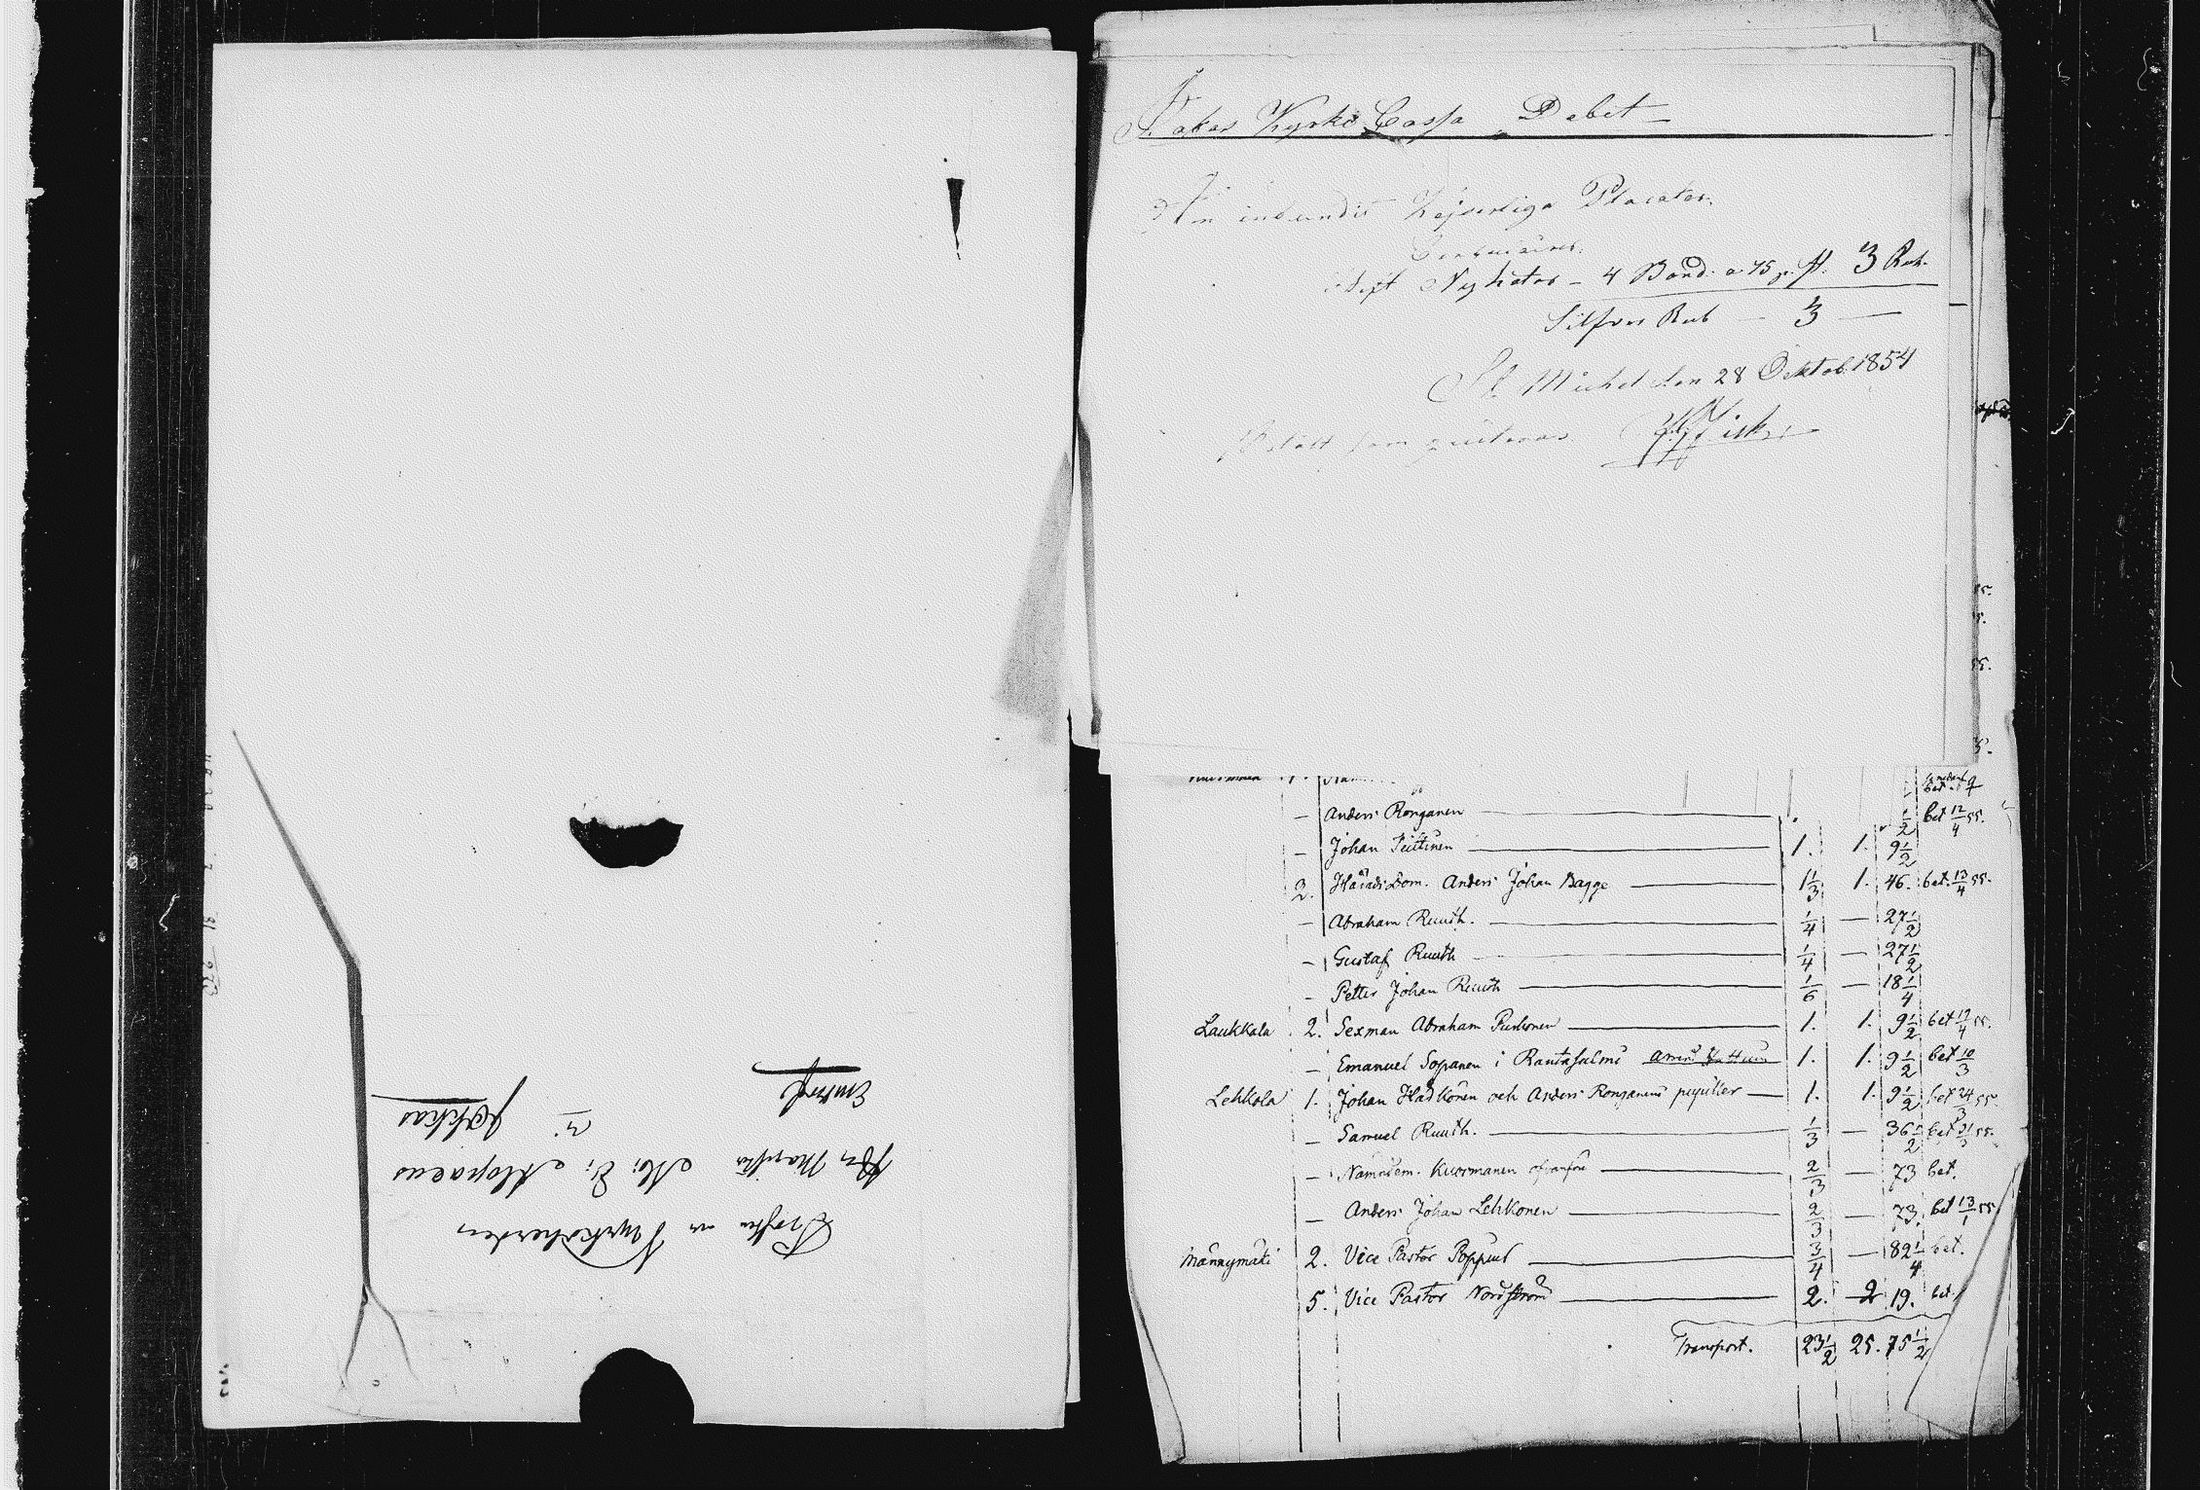 Prosten och Kyrkoherden
Herr Magister M. J. Alopaeus
i
Jokkas
Embetsbref
Jokkas Kyrko Cassa Debet
För inbundit Kejserliga Placater
4 Band. a 75 p. st. 3 Rub.
Silfver Rub — 3 —
St Michel den 28 Oktob. 1854
Betalt som quitteras
— Anders Ronganen — 1/2 bet 12/4 55.
— Johan Teittinen — 1. 1. 9 1/2
2. Häradsdom. Anders Johan Bagge — 1 1/3 1. 46. bet. 13/4 55.
— Abraham Ruuth. — 1/4 — 27 1/2
— Gustaf Ruuth — 1/4 — 27 1/2
— Petter Johan Ruuth — 1/6 — 18 1/4
Laukkala 2. Sexman Abraham Purhonen — 1. 1. 9 1/2 bet 17/4 55.
— Emanuel Sopanen i Rantasalmi 1. 1. 9 1/2 bet 10/3
Lehkola 1. Johan Häkkönen och Anders Ronganens pupiller — 1. 1. 9 1/2 bet 24/3 55.
— Samuel Ruuth. — 1/3 — 36 1/2 bet 31/3 55.
— Nämndem. Kuosmanen — 2/3 — 73 bet.
— Anders Johan Lehkonen — 2/3 — 73. bet 13/1 55
Männymäki 2. Vice Pastor Poppius — 3/4 — 82 1/4 bet.
5. Vice Pastor Nordström — 2. 2 19. bet
Transport. 23 1/2 25. 75 1/2